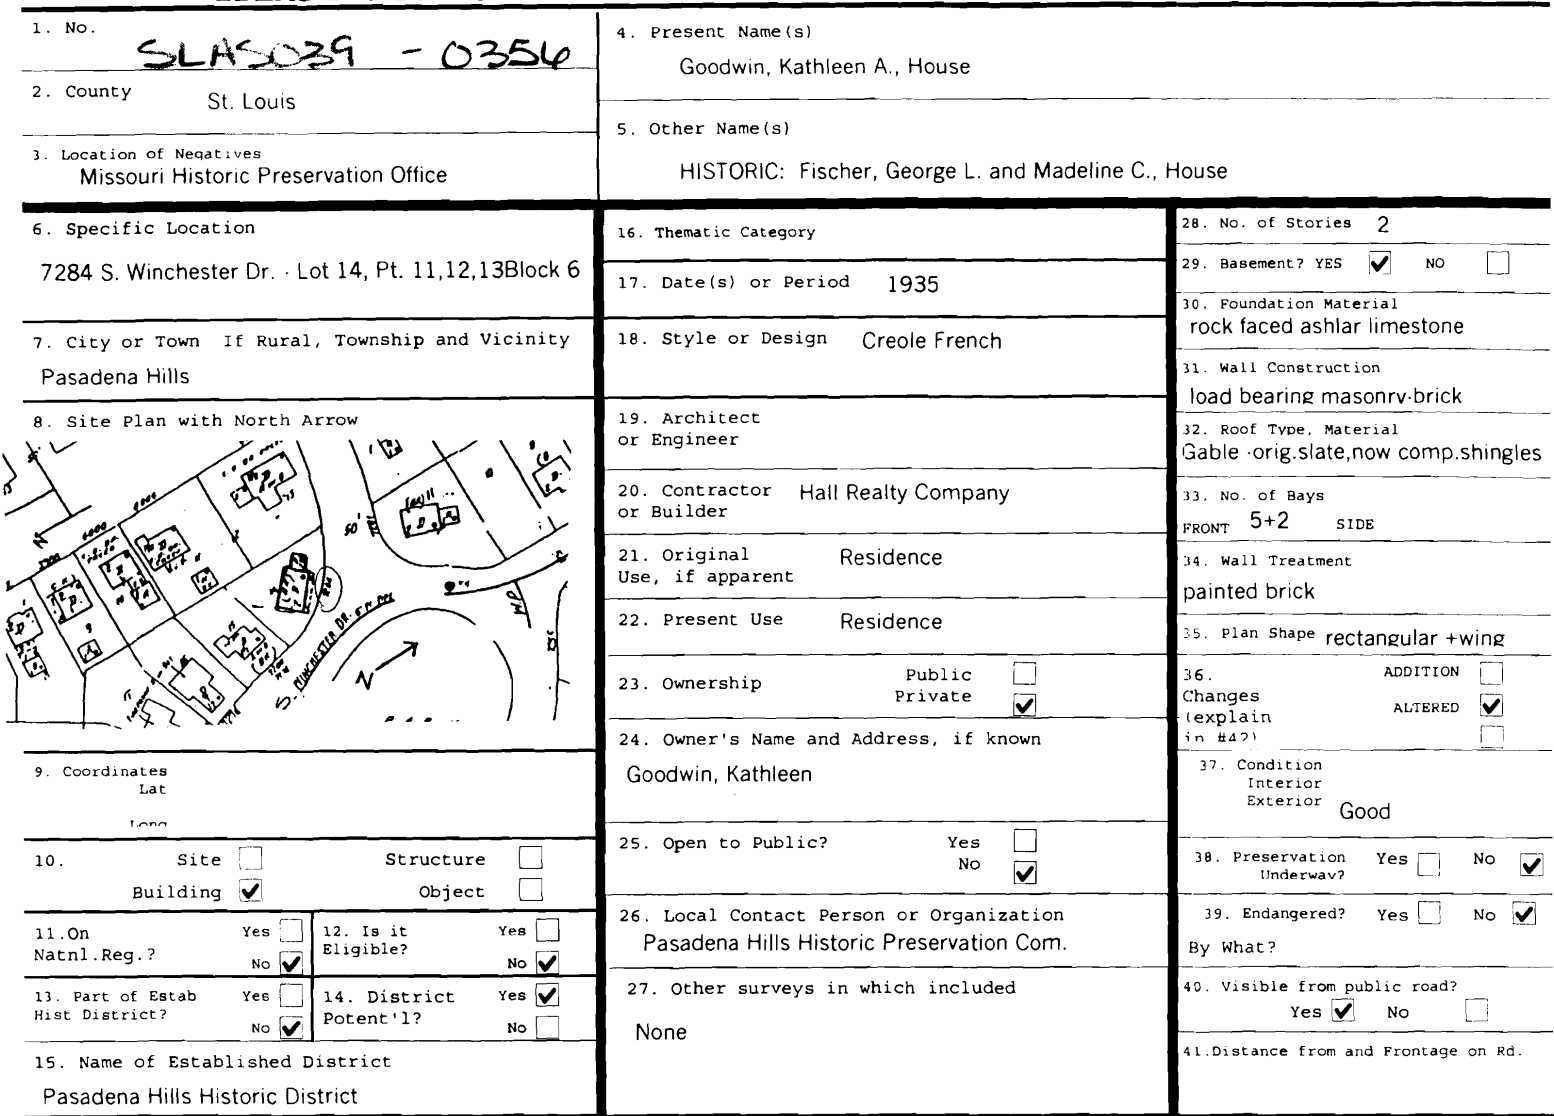 1. No.
SLAS039 - 0356
2. County
St. Louis
3. Location of Negatives
Missouri Historic Preservation Office
4. Present Name(s)
Goodwin, Kathleen A., House
5. Other Name(s)
HISTORIC: Fischer, George L. and Madeline C., House
6. Specific Location
7284 S. Winchester Dr. · Lot 14, Pt. 11,12,13Block 6
7. City or Town If Rural, Township and Vicinity
Pasadena Hills
8. Site Plan with North Arrow
S. WINCHESTER DR.
N
9. Coordinates
Lat
Long
10. Site Structure
Building Object
11.On Yes
Natnl.Reg.? No
12. Is it Yes
Eligible? No
13. Part of Estab Yes
Hist District? No
14. District Yes
Potent'l? No
15. Name of Established District
Pasadena Hills Historic District
16. Thematic Category
17. Date(s) or Period 1935
18. Style or Design Creole French
19. Architect
or Engineer
20. Contractor Hall Realty Company
or Builder
21. Original Residence
Use, if apparent
22. Present Use Residence
23. Ownership Public
Private
24. Owner's Name and Address, if known
Goodwin, Kathleen
25. Open to Public? Yes
No
26. Local Contact Person or Organization
Pasadena Hills Historic Preservation Com.
27. Other surveys in which included
None
28. No. of Stories 2
29. Basement? YES NO
30. Foundation Material
rock faced ashlar limestone
31. Wall Construction
load bearing masonry-brick
32. Roof Type, Material
Gable ·orig.slate,now comp.shingles
33. No. of Bays
FRONT 5+2 SIDE
34. Wall Treatment
painted brick
35. Plan Shape rectangular +wing
36. ADDITION
Changes
(explain ALTERED
in #42)
37. Condition
Interior
Exterior Good
38. Preservation Yes No
Underway?
39. Endangered? Yes No
By What?
40. Visible from public road?
Yes No
41.Distance from and Frontage on Rd.